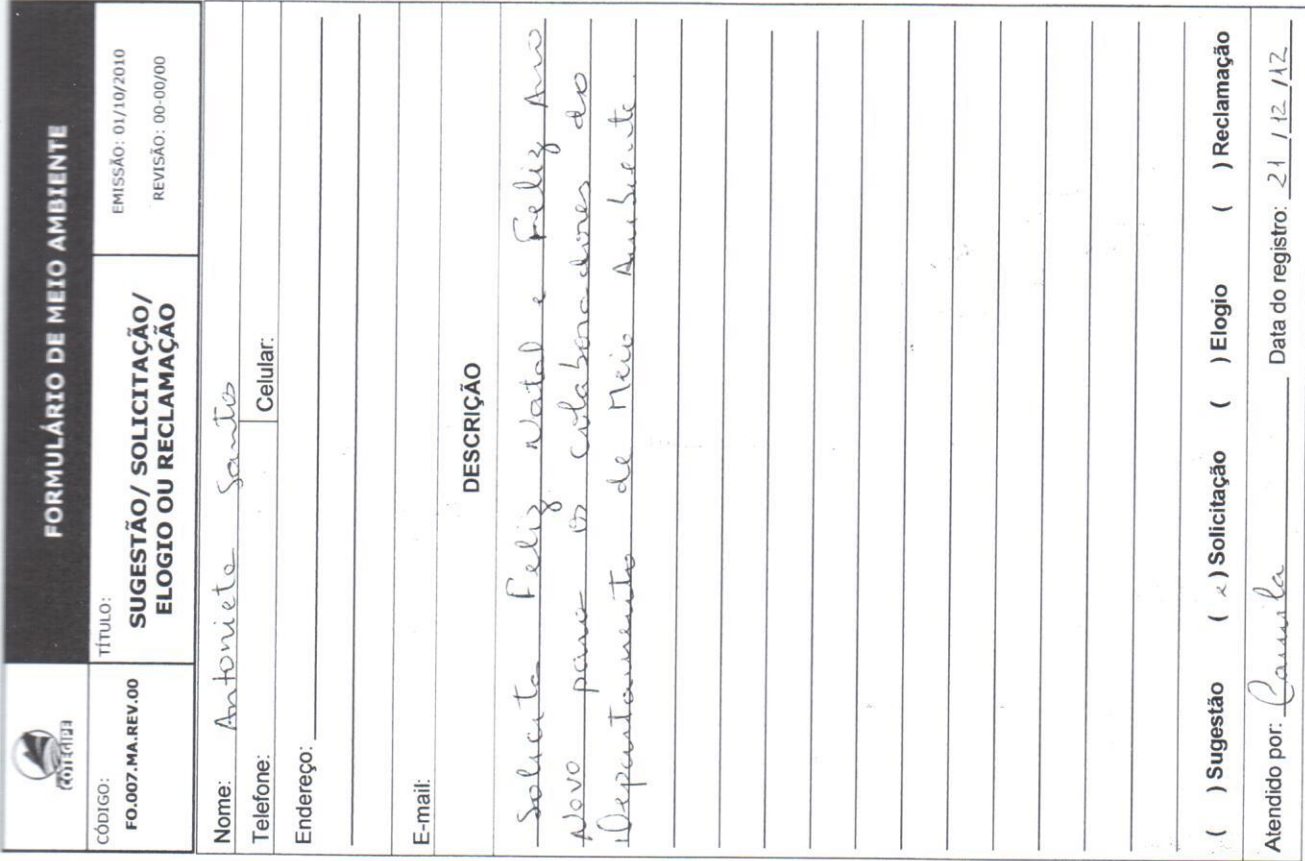 COTEGIPE
FORMULÁRIO DE MEIO AMBIENTE
CÓDIGO:
FO.007.MA.REV.00
TÍTULO:
SUGESTÃO/ SOLICITAÇÃO/
ELOGIO OU RECLAMAÇÃO
EMISSÃO: 01/10/2010
REVISÃO: 00-00/00
Nome: Antonieta Santos
Telefone: Celular:
Endereço:
E-mail:
DESCRIÇÃO
Solicita Feliz Natal e Feliz Ano
Novo para os colaboradores do
Departamento de Meio Ambiente.
( ) Sugestão (x) Solicitação ( ) Elogio ( ) Reclamação
Atendido por: Camila Data do registro: 21/12/12